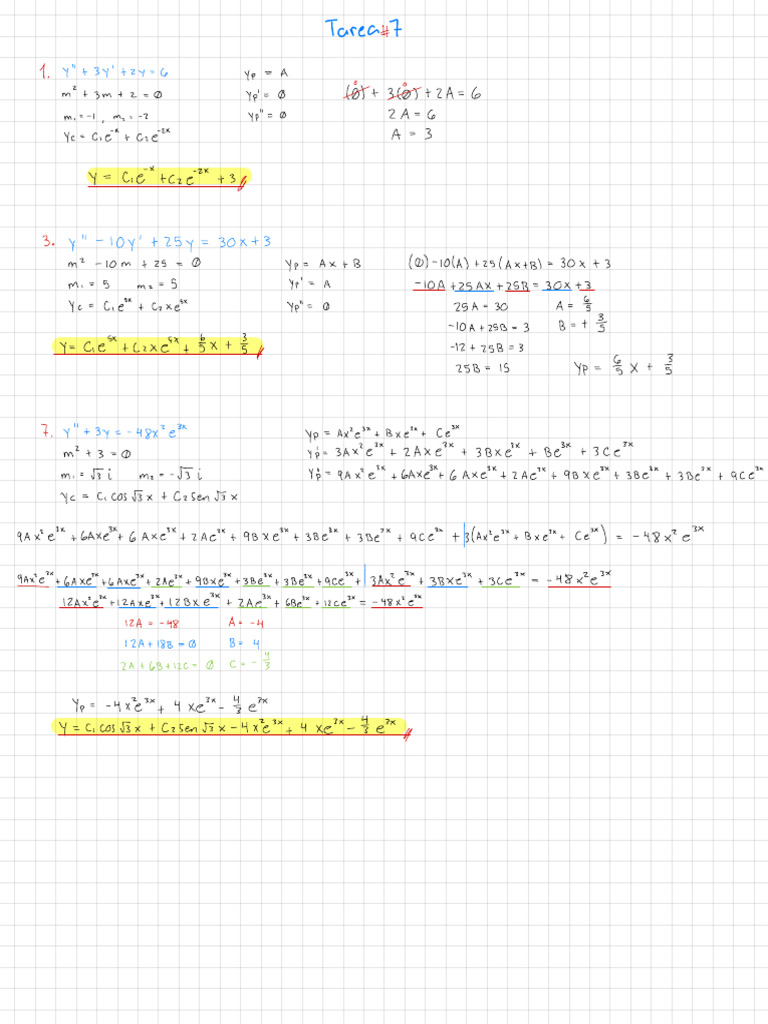 Tarea#7
1. y'' + 3y' + 2y = 6
m² + 3m + 2 = 0
m₁ = -1, m₂ = -2
Yc = C₁e⁻ˣ + C₂e⁻²ˣ
Yp = A
Yp' = 0
Yp'' = 0
(0) + 3(0) + 2A = 6
2A = 6
A = 3
Y = C₁e⁻ˣ + C₂e⁻²ˣ + 3
3. y'' - 10y' + 25y = 30x + 3
m² - 10m + 25 = 0
m₁ = 5 m₂ = 5
Yc = C₁e⁵ˣ + C₂xe⁵ˣ
Yp = Ax + B
Yp' = A
Yp'' = 0
(0) - 10(A) + 25(Ax+B) = 30x + 3
-10A + 25Ax + 25B = 30x + 3
25A = 30 A = 6/5
-10A + 25B = 3 B = + 3/5
-12 + 25B = 3
25B = 15
Yp = 6/5 x + 3/5
Y = C₁e⁵ˣ + C₂xe⁵ˣ + 6/5 x + 3/5
7. y'' + 3y = -48x²e³ˣ
m² + 3 = 0
m₁ = √3 i m₂ = -√3 i
Yc = C₁cos√3x + C₂sen√3x
Yp = Ax²e³ˣ + Bxe³ˣ + Ce³ˣ
Yp' = 3Ax²e³ˣ + 2Axe³ˣ + 3Bxe³ˣ + Be³ˣ + 3Ce³ˣ
Yp'' = 9Ax²e³ˣ + 6Axe³ˣ + 6Axe³ˣ + 2Ae³ˣ + 9Bxe³ˣ + 3Be³ˣ + 3Be³ˣ + 9Ce³ˣ
9Ax²e³ˣ + 6Axe³ˣ + 6Axe³ˣ + 2Ae³ˣ + 9Bxe³ˣ + 3Be³ˣ + 3Be³ˣ + 9Ce³ˣ + 3(Ax²e³ˣ + Bxe³ˣ + Ce³ˣ) = -48x²e³ˣ
9Ax²e³ˣ + 6Axe³ˣ + 6Axe³ˣ + 2Ae³ˣ + 9Bxe³ˣ + 3Be³ˣ + 3Be³ˣ + 9Ce³ˣ + 3Ax²e³ˣ + 3Bxe³ˣ + 3Ce³ˣ = -48x²e³ˣ
12Ax²e³ˣ + 12Axe³ˣ + 12Bxe³ˣ + 2Ae³ˣ + 6Be³ˣ + 12Ce³ˣ = -48x²e³ˣ
12A = -48 A = -4
12A + 18B = 0 B = 4
2A + 6B + 12C = 0 C = -4/3
Yp = -4x²e³ˣ + 4xe³ˣ - 4/3 e³ˣ
Y = C₁cos√3x + C₂sen√3x - 4x²e³ˣ + 4xe³ˣ - 4/3 e³ˣ